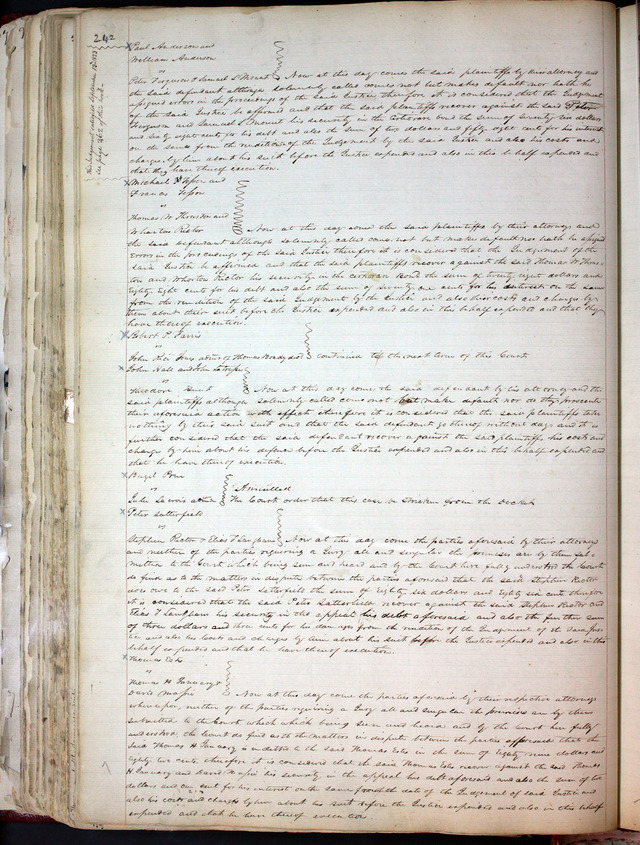 242
Paul Anderson and
William Anderson
vs
Peter Ferguson & Samuel S Mount Now at this day comes the said plaintiffs by their attorney and
the said defendant although solemnly called comes not but makes default nor hath he
assigned errors in the proceedings of the said Justice therefore it is considered that the Judgement
of the said Justice be affirmed and that the said plaintiffs recover against the said Peter
Ferguson and Samuel S Mount his security in the bond the sum of seventy six dollars
and sixty eight cents for his debt and also the sum of two dollars and fifty eight cents for his interest
on the same from the rendition of the Judgement by the said Justice and also his costs and
charges by him about his suit before the Justice expended and also in this behalf expended and
that they have thereof execution.
Michael and
Francis
vs
Thomas W Thruston and
Wharton Rector Now at this day come the said plaintiffs by their attorney and
the said defendant although solemnly called comes not but makes default nor hath he assigned
errors in the proceedings of the said Justice therefore it is considered that the Judgement of the
said Justice be affirmed and that the said plaintiffs recover against the said Thomas W Thrus-
ton and Wharton Rector his security in the Bond the sum of twenty eight dollars and
Eighty Eight cents for his debt and also the sum of seventy one cents for his interest on the same
from the rendition of the said Judgement by the Justice and also their costs and charges by
them about their suit before the Justice expended and also in this behalf expended and that they
have thereof execution.
Robert P. Farris
vs
John Rice Jones admr of Thomas continued till the next term of this Court
John Hall and John
vs
Theodore Hunt Now at this day come the said defendant by his attorney and the
said plaintiffs although solemnly called come not but make default nor do they prosecute
their aforesaid action with effect therefore it is considered that the said plaintiffs take
nothing by their said suit and that the said defendant go thereof without day and it is
further considered that the said defendant recover against the said plaintiffs his costs and
charge by him about his defence before the Justice expended and also in this behalf expended and
that he have thereof execution.
vs Annulled
The Court order that this case be stricken from the Docket
Peter Satterfield
vs
Stephen Rector & Elias T Langham Now at this day come the parties aforesaid by their attorneys
and neither of the parties requiring a Jury all and singular the premises are by them sub-
mitted to the Court which being seen and heard and by the Court here fully understood the Court
do find as to the matters in dispute between the parties aforesaid that the said Stephen Rector
does owe to the said Peter Satterfield the sum of Eighty six dollars and Eighty six cents therefore
it is considered that the said Peter Satterfield recover against the said Stephen Rector and
Elias T Langham his security in the appeal his debt aforesaid and also the further sum
of three dollars and three cents for his damages from the rendition of the Judgement of the said Jus-
tice and also his Costs and Charges by him about his suit before the Justice expended and also in this
behalf expended and that he have thereof execution.
Thomas Estes
vs
Thomas H January &
David Massie Now at this day come the parties aforesaid by their respective attorneys
whereupon, neither of the parties requiring a Jury all and singular the premises are by them
submitted to the Court which which being seen and heard and by the Court here fully
understood the Court do find as to the matters in dispute between the parties aforesaid that the
said Thomas H January is indebted to the said Thomas Estes in the sum of Eighty nine dollars and
Eighty two cents. therefore it is considered that the said Thomas Estes recover against the said Thomas
H January and David Massie his security in the appeal his debt aforesaid and also the sum of two
dollars and one cent for his interest on the same from the date of the Judgement of said Justice and
also his costs and charges by him about his suit before the Justice expended and also in this behalf
expended and that he have thereof execution.